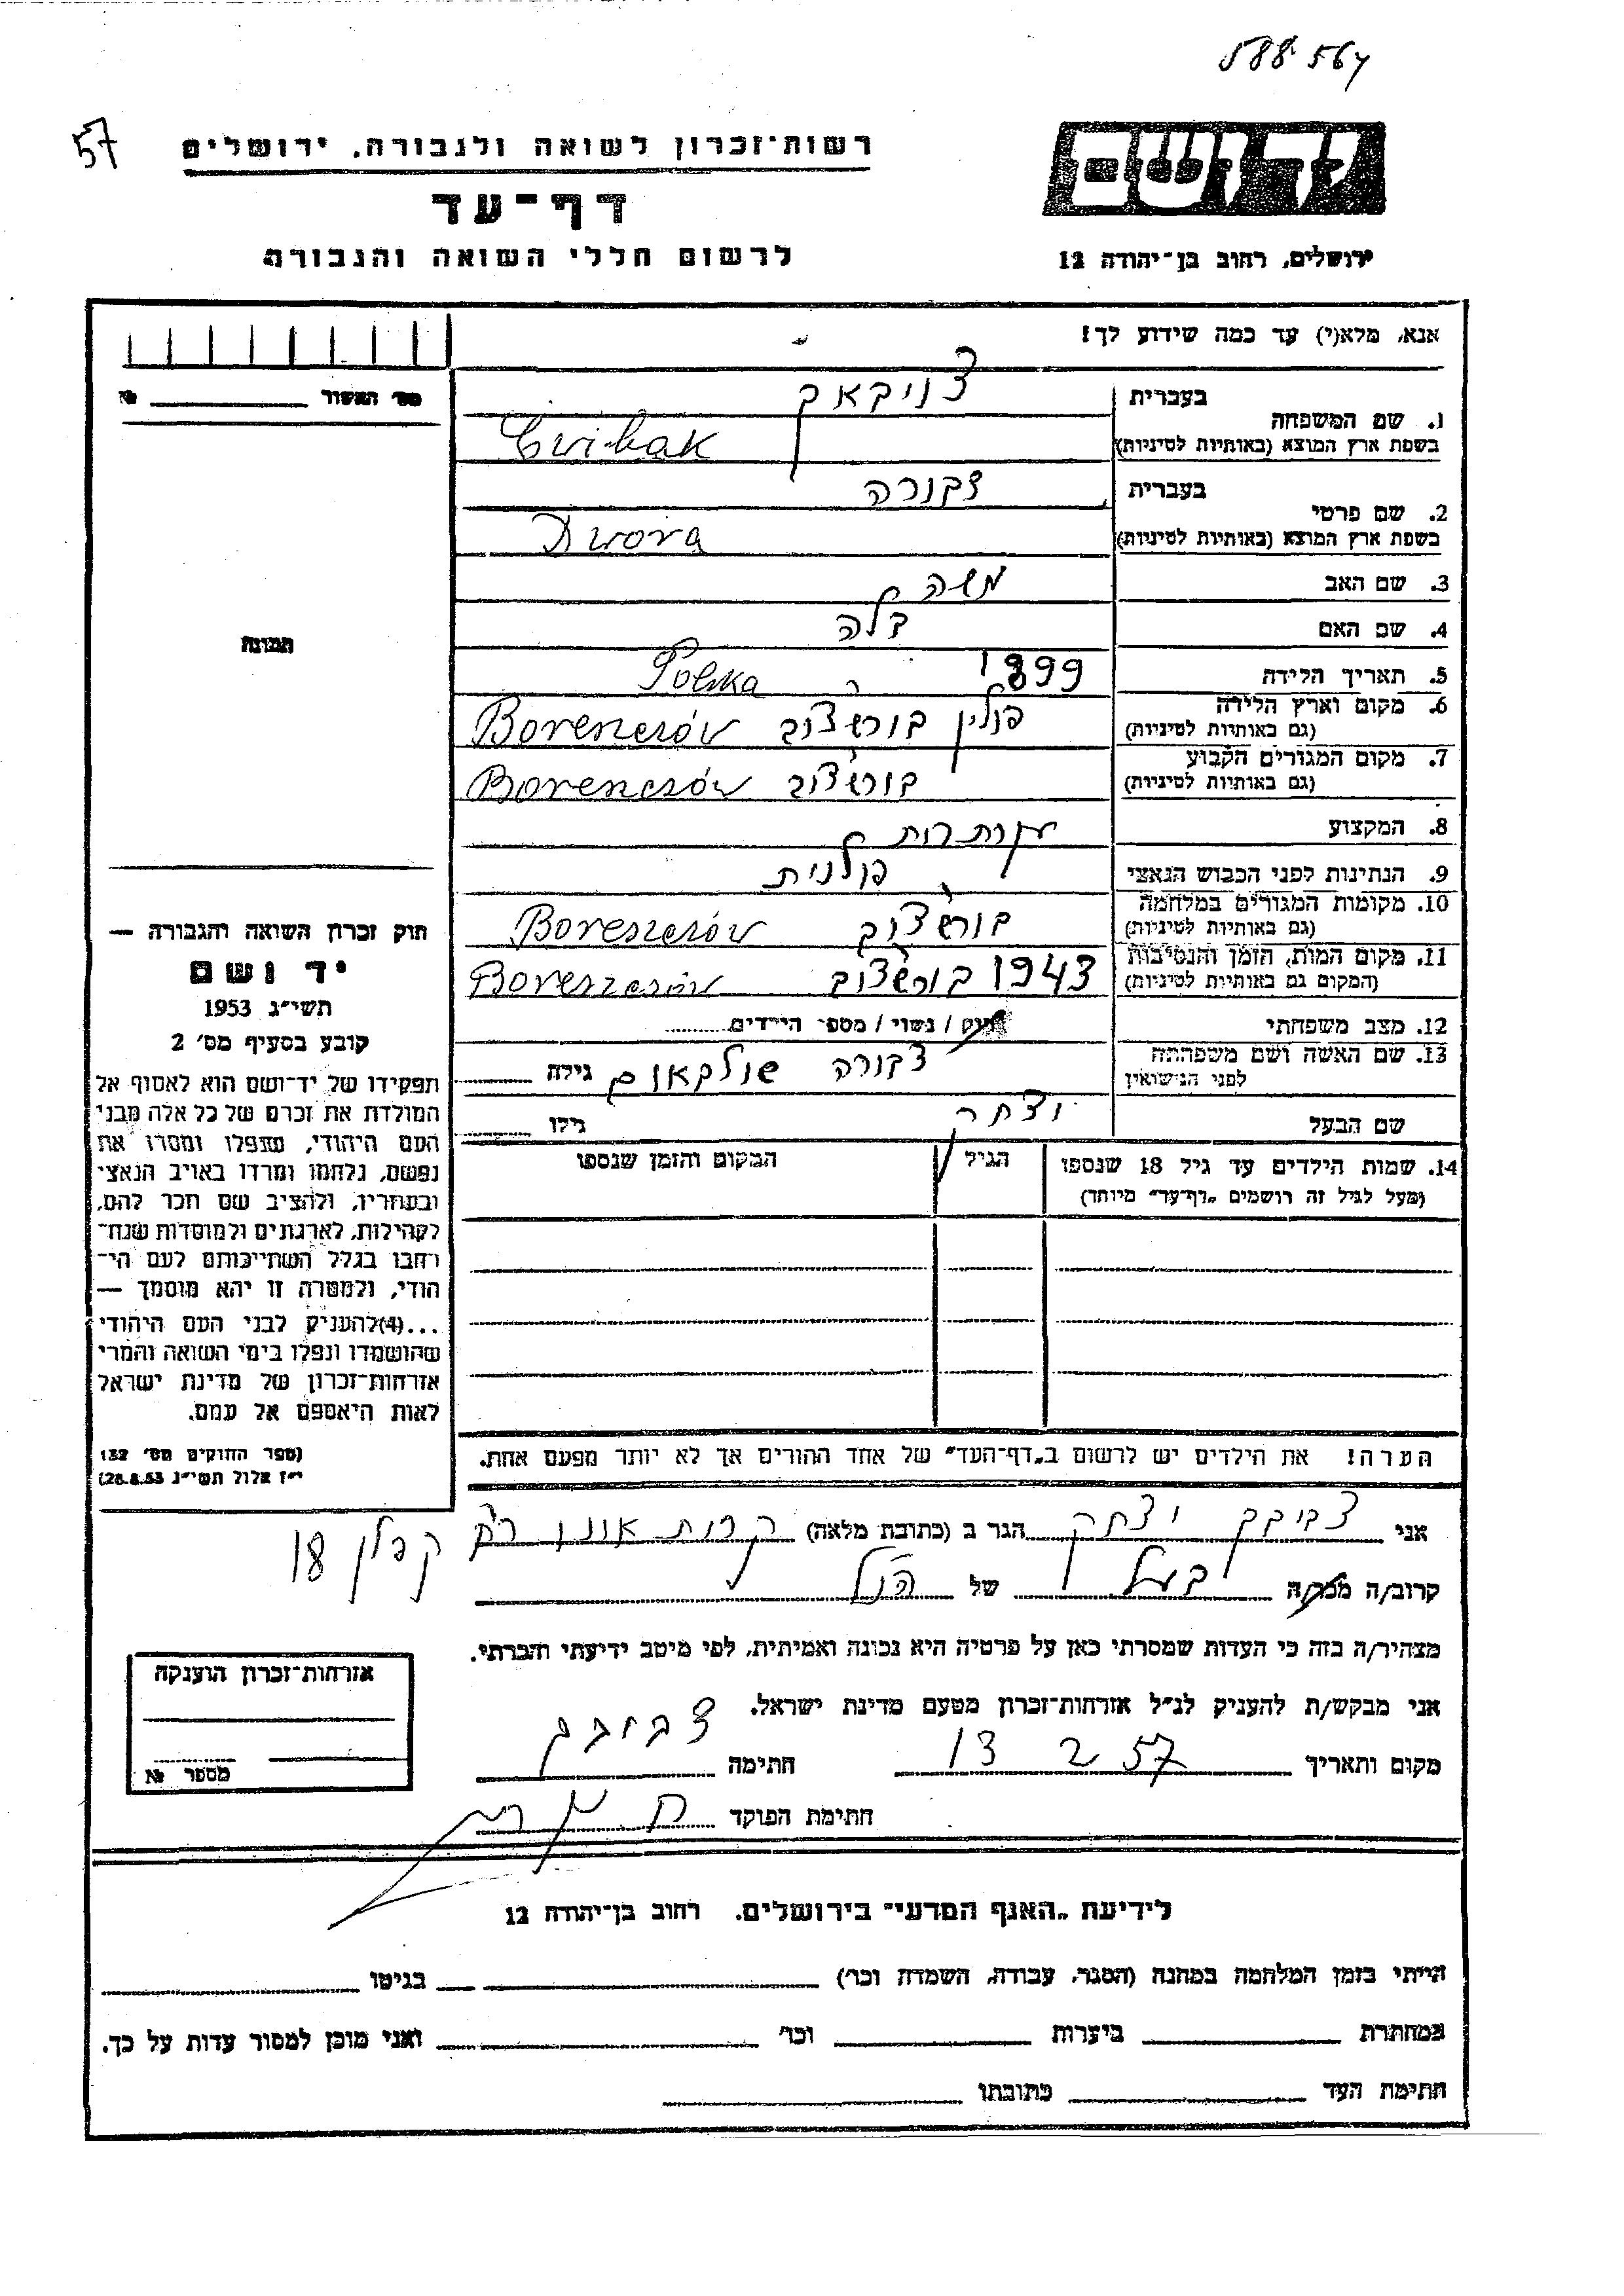 588564
57
רשות-זכרון לשואה ולגבורה, ירושלים
דף-עד
לרשום חללי השואה והגבורה
ידושם
ירושלים, רחוב בן-יהודה 12
אנא, מלא(י) עד כמה שידוע לך!
מס' האשור № 
1. שם המשפחה בעברית צויבאק
בשפת ארץ המוצא (באותיות לטיניות) Cwibak
2. שם פרטי בעברית דבורה
בשפת ארץ המוצא (באותיות לטיניות) Dwora
3. שם האב משה
4. שם האם
5. תאריך הלידה 1899 Polska
6. מקום וארץ הלידה (גם באותיות לטיניות) פולין בורשצוב
7. מקום המגורים הקבוע (גם באותיות לטיניות) בורשצוב
8. המקצוע
9. הנתינות לפני הכבוש הנאצי פולנית
10. מקומות המגורים במלחמה (גם באותיות לטיניות) בורשצוב
11. מקום המות, הזמן והנסיבות (המקום גם באותיות לטיניות) 1943 בורשצוב
12. מצב משפחתי רווק / נשוי / מספר הילדים
13. שם האשה ושם משפחתה לפני הנישואין דבורה גילה
שם הבעל יצחק גילו
14. שמות הילדים עד גיל 18 שנספו הגיל המקום והזמן שנספו
(מעל לגיל זה רושמים "דף-עד" מיוחד)
הערה! את הילדים יש לרשום ב"דף-העד" של אחד ההורים אך לא יותר מפעם אחת.
תמונה
חוק זכרון השואה והגבורה —
יד ושם
תשי"ג 1953
קובע בסעיף מס' 2
תפקידו של יד-ושם הוא לאסוף אל
המולדת את זכרם של כל אלה מבני
העם היהודי, שנפלו ומסרו את
נפשם, נלחמו ומרדו באויב הנאצי
ובעוזריו, ולהציב שם וזכר להם,
לקהילות, לארגונים ולמוסדות שנח-
רבו בגלל השתייכותם לעם הי-
הודי, ולמטרה זו יהא מוסמך —
...(4) להעניק לבני העם היהודי
שהושמדו ונפלו בימי השואה והמרי
אזרחות-זכרון של מדינת ישראל
לאות היאספם אל עמם.
(ספר החוקים מס' 132
י"ז אלול תשי"ג 28.8.53)
אני יצחק הגר ב (כתובת מלאה) קרית אונו 18
קרוב/ה בעל של הנ"ל
מצהיר/ה בזה כי העדות שמסרתי כאן על פרטיה היא נכונה ואמיתית, לפי מיטב ידיעתי והכרתי.
אני מבקש/ת להעניק לנ"ל אזרחות-זכרון מטעם מדינת ישראל.
מקום ותאריך 13 2 57 חתימה
חתימת הפוקד
אזרחות-זכרון הוענקה
מספר №
לידיעת "האגף המדעי" בירושלים, רחוב בן-יהודה 12
הייתי בזמן המלחמה במחנה (הסגר, עבודה, השמדה וכו') בגיטו
במחתרת ביערות וכו' ואני מוכן למסור עדות על כך.
חתימת העד כתובתו